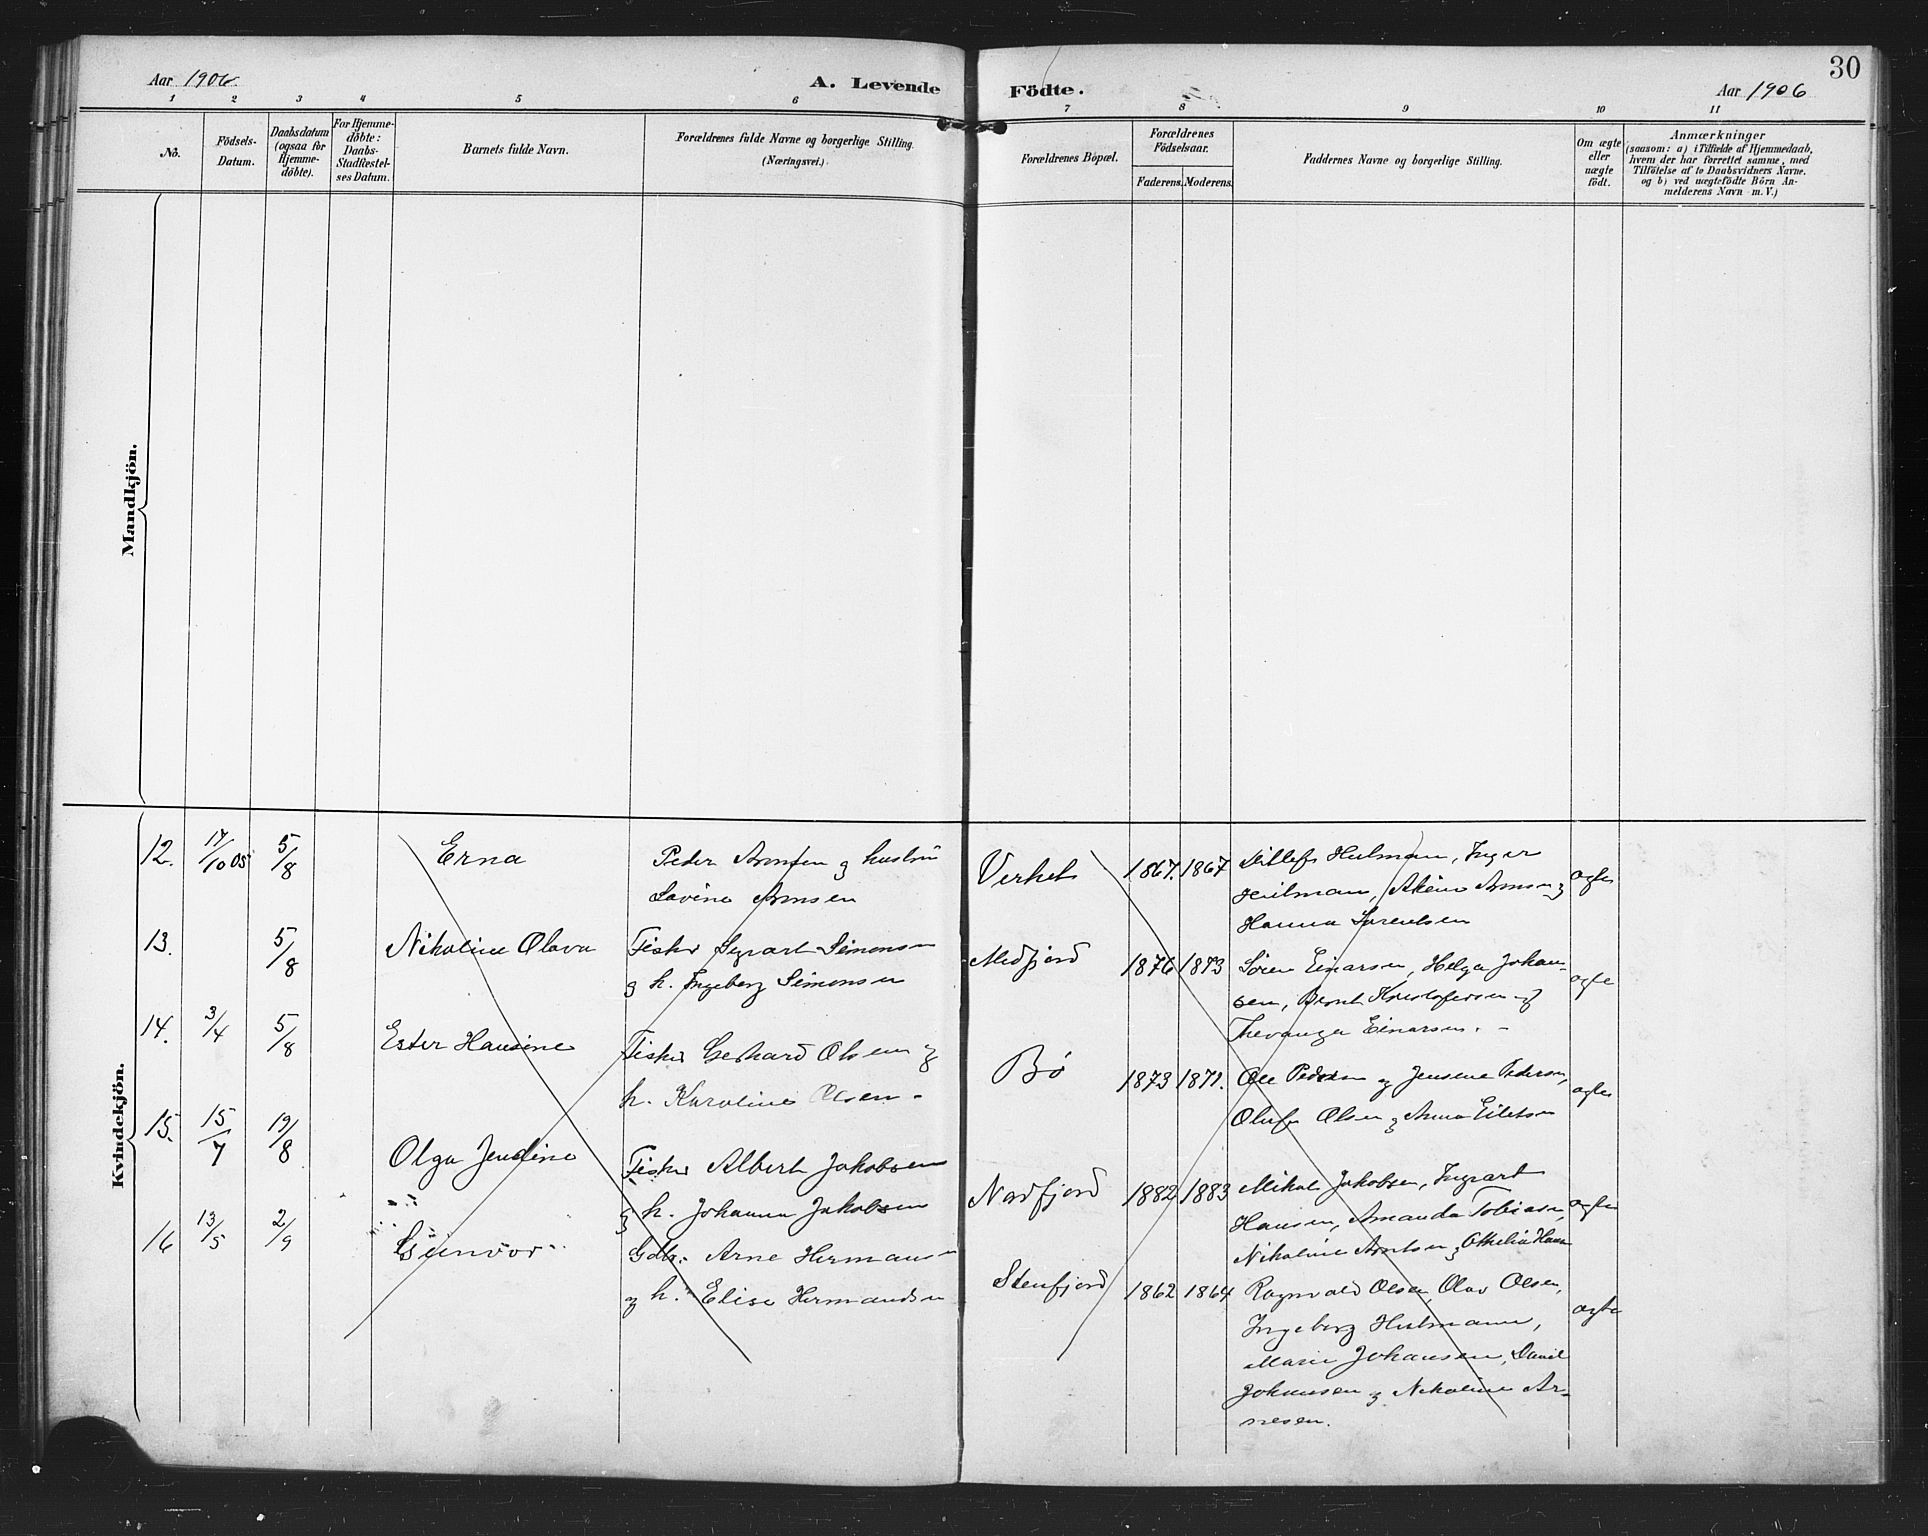 30
Aar 1906.
A. Levende Födte.
Aar 1906
1 2 3 4 5 6 7 8 9 10 11
No.
Födsels-
Datum.
Daabsdatum
(ogsaa for
Hjemme-
döbte).
For Hjemme-
döbte:
Daabs-
Stadfæstel-
ses Datum.
Barnets fulde Navn.
Forældrenes fulde Navne og borgerlige Stilling.
(Næringsvei.)
Forældrenes Bopæl.
Forældrenes
Födselsaar.
Faderens. Moderens.
Faddernes Navne og borgerlige Stilling.
Om ægte
eller
uægte
födt.
Anmærkninger
(saasom: a) i Tilfælde af Hjemmedaab,
hvem der har forrettet samme, med
Tilföielse af to Daabsvidners Navne.
og b) ved uægtefödte Börn An-
melderens Navn m. V.)
Mandkjön.
Kvindekjön.
12. 17/10 05 5/8 Erna
Peder Arnsen og hustru
Lovina Arnsen
Verket 1867. 1867
Ditlef Heilman, Inger
Heilman, Arnsen og
Hanna Sørentsen
ægte
13. 5/8 Nikoline Olava
Fisker Sigvart Simonsen
og h. Ingeberg Simonsen
Medfjord 1876 1873
Søren Einarsen, Helga Johan-
sen, Bernt Kristofersen og
Thevanga Einarsen.
ægte
14. 3/4 5/8 Ester Hansine
Fisker Gerhard Olsen og
h. Karoline Olsen.
Bø 1873 1871.
Ole Pedersen og Jensine Pedersen,
Olufa Olsen og Anna Eilertsen
ægte
15. 15/7 19/8 Olga Jendine
Fisker Albert Jakobsen
og h. Johanna Jakobsen
Nordfjord 1882 1883
Mikal Jakobsen, Ingvart
Hansen, Amanda Tobiasen,
Nikoline Arntsen og Othelie Hansen
ægte
16 13/5 2/9 Günvor
Gdbr. Arne Hermansen
og h. Elise Hermandsen
Stenfjord 1862 1864
Ragnvald Olsen, Olav Olsen,
Ingeberg Heilmann,
Marie Johansen, Daniel
Johansen og Nikoline Ar-
nesen.
ægte